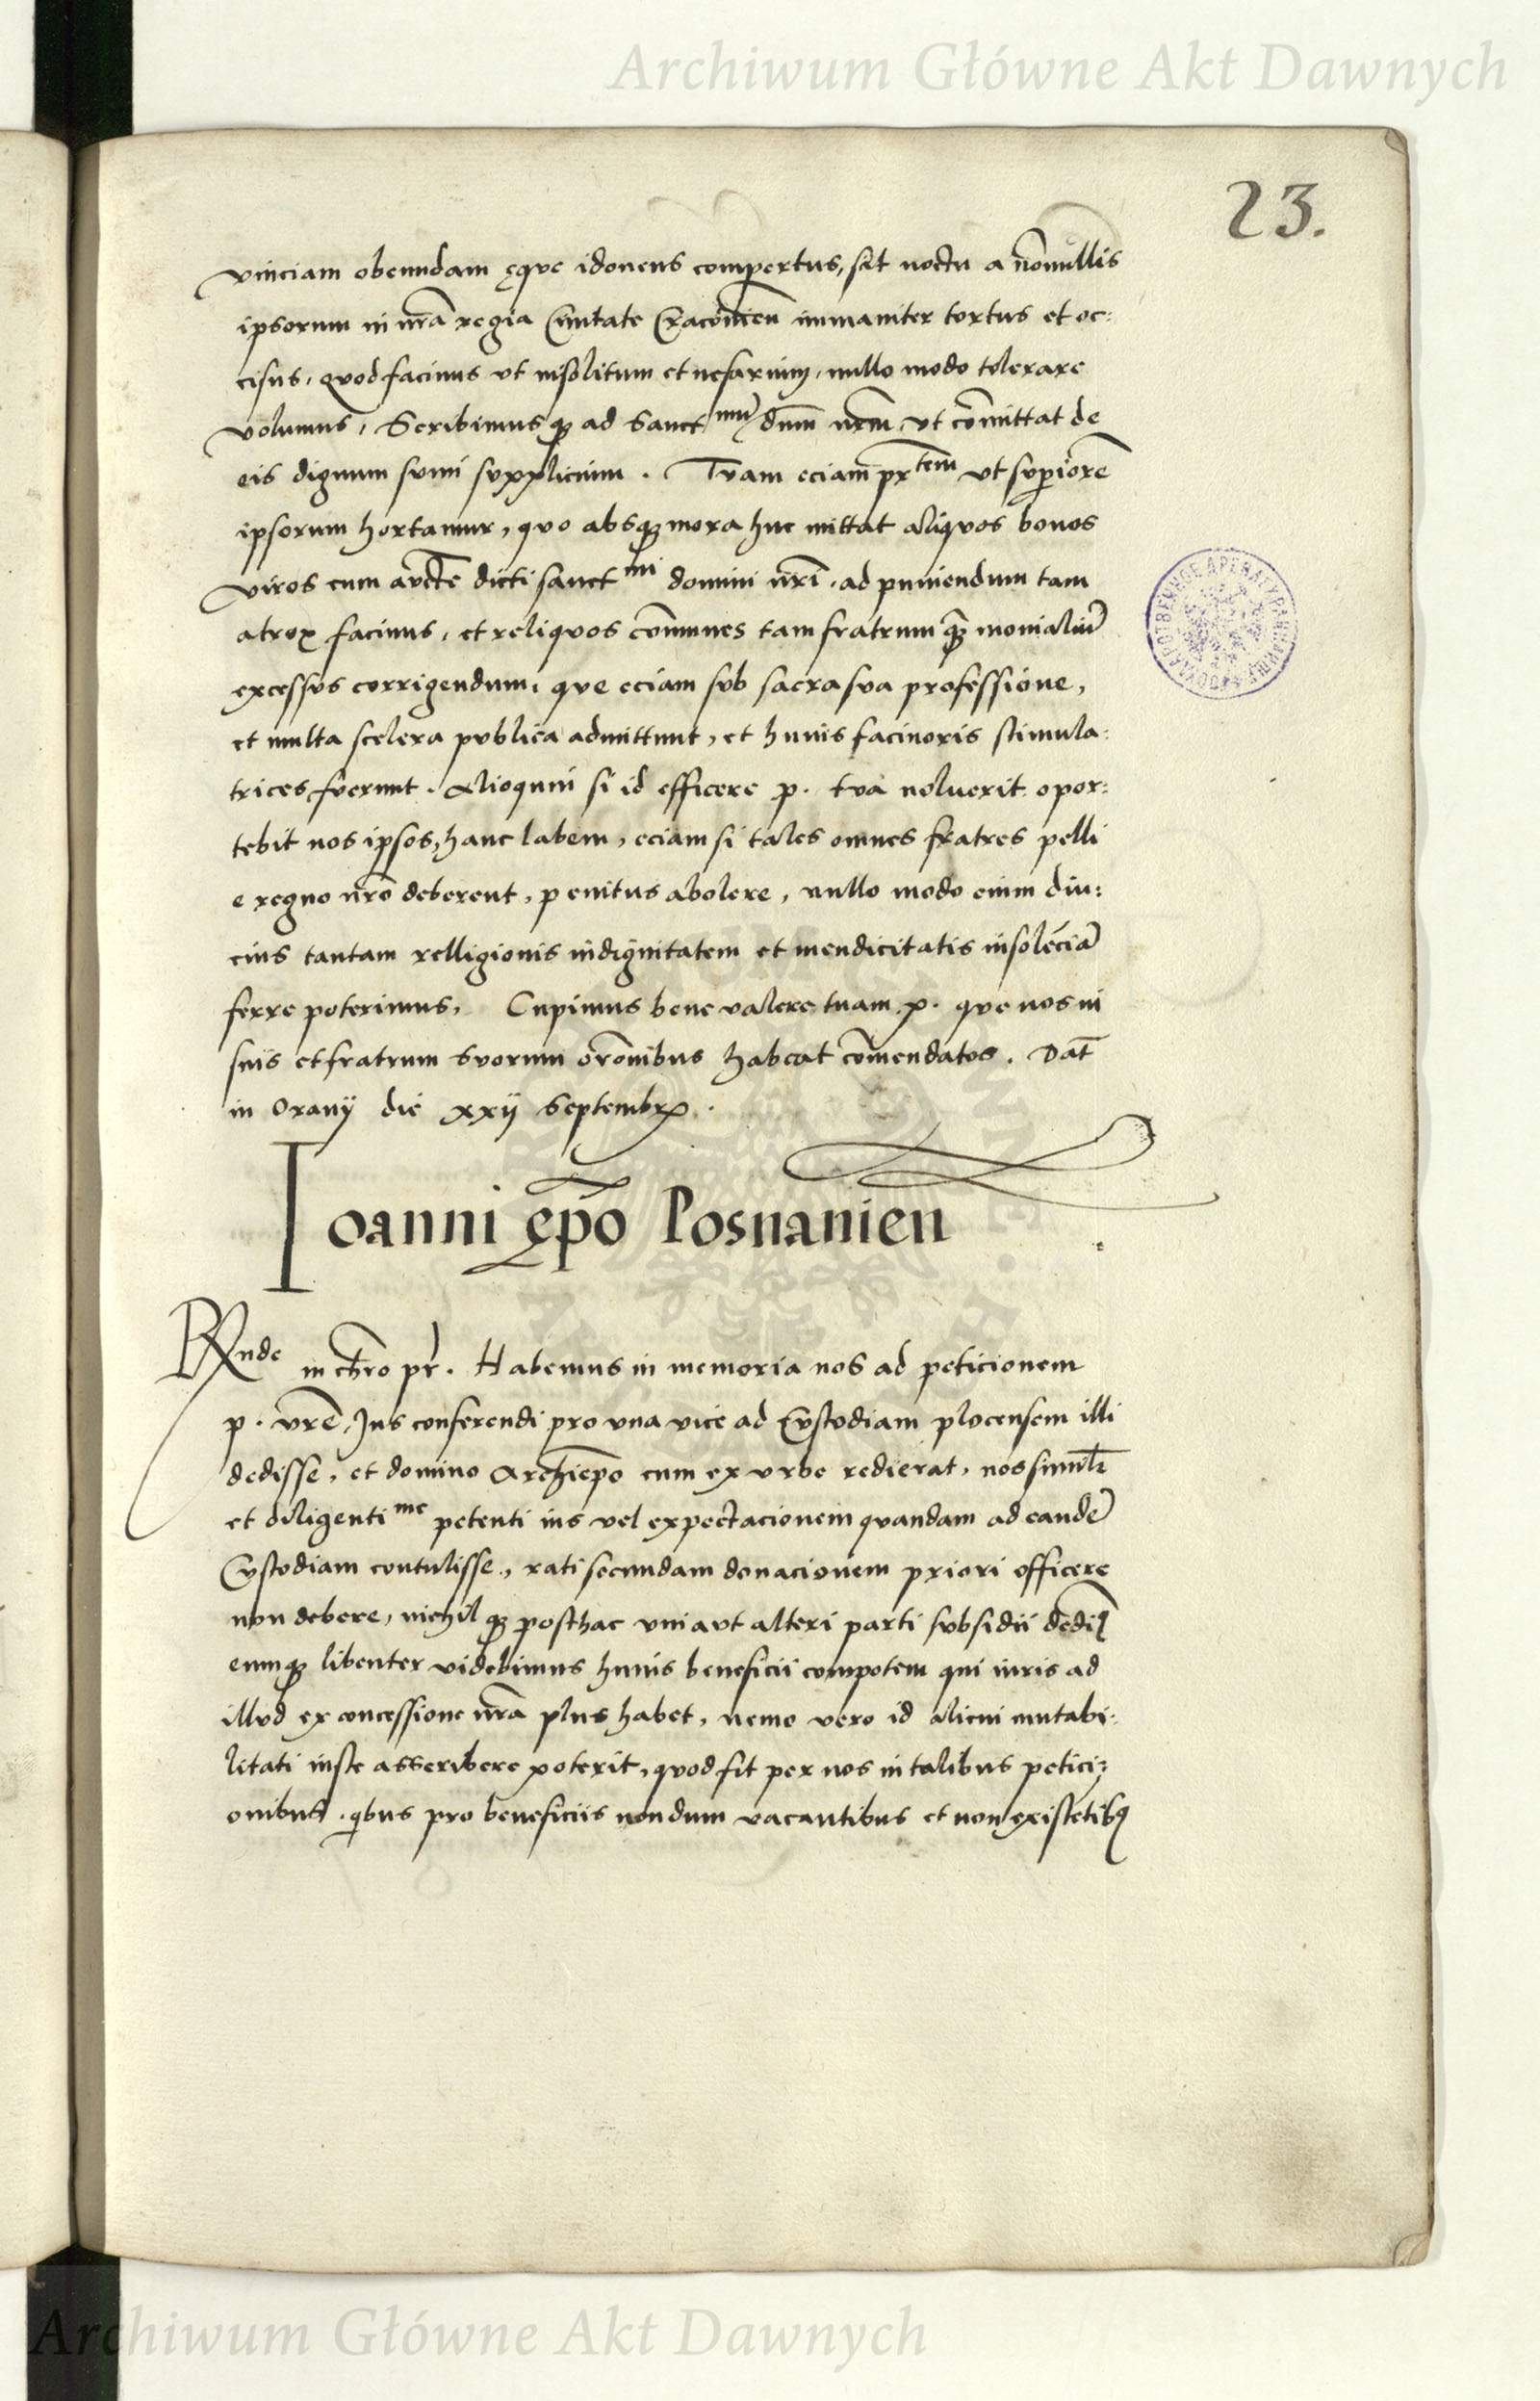 Archiwum Główne Akt Dawnych
23.
vinciam obeundam ęque idoneus compertus, sit noctu a nōnullis
ipsorum in nrā regia Ciuitate Cracouień immaniter tortus et oc:
cisus, quod facinus vt insolitum et nefarium, nullo modo tolerare
volumus, Scribimusqȝ ad Sanctmū dnm̄ nrm̄ vt cōmittat de
eis dignum sumi supplicium. Tuam eciam prtem vt superiorē
ipsorum hortamur, quo absqȝ mora huc mittat aliquos bonos
viros cum auctē dicti sanctmi domini nrī, ad puniendum tam
atrox facinus, et reliquos cōmunes tam fratrum qȝ monialiū
excessus corrigendum, que eciam sub sacra sua professione,
et multa scelera publica admittunt, et huius facinoris stimula:
trices fuerunt. Alioquin si id efficere p. tua noluerit opor:
tebit nos ipsos, hanc labem, eciam si tales omnes fratres pelli
e regno nrō deberent, penitus abolere, nullo modo enim diu:
cius tantam relligionis indignitatem et mendicitatis insolēciā
ferre poterimus. Cupimus bene valere tuam p. que nos in
suis et fratrum suorum orōnibus habeat cōmendatos. Dat̄
in Orany die xxij Septembr.
Ioanni ępō Posnanień
Rnde in chrō pr. Habemus in memoria nos ad peticionem
p. vrē, Ius conferendi pro vna vice ad Custodiam plocensem illi
dedisse, et domino Archiepō cum ex vrbe redierat, nos simulr
et diligentime petenti ius vel expectacionem quandam ad eandē
Custodiam contulisse, rati secundam donacionem priori officere
non debere, nichilqȝ posthac vni aut alteri parti subsidii dedi
eumqȝ libenter videbimus huius beneficii compotem qui iuris ad
illud ex concessione nrā plus habet, nemo vero id alicui mutabi:
litati iuste asscribere poterit, quod fit per nos in talibus petici:
onibus, qbus pro beneficiis nondum vacantibus et non existētibꝫ
Archiwum Główne Akt Dawnych